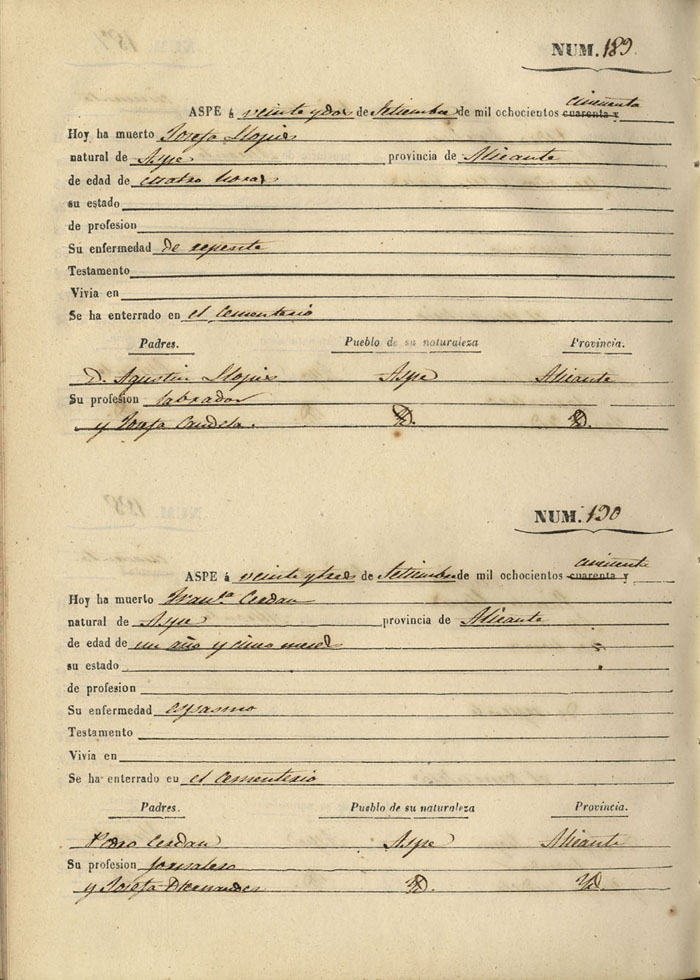 NUM. 189
cincuenta
ASPE á veinte y dos de Setiembre de mil ochocientos cuarenta y
Hoy ha muerto Josefa Llopis
natural de Aspe provincia de Alicante
de edad de cuatro horas
su estado
de profesion
Su enfermedad de repente
Testamento
Vivia en
Se ha enterrado en el Cementerio
Padres. Pueblo de su naturaleza Provincia.
D. Agustin Llopis Aspe Alicante
Su profesion labrador
y Josefa Candela. Yd. Yd.
NUM. 190
cincuenta
ASPE á veinte y tres de Setiembre de mil ochocientos cuarenta y
Hoy ha muerto Fran.ca Cerdan
natural de Aspe provincia de Alicante
de edad de un año y cinco meses
su estado
de profesion
Su enfermedad espasmo
Testamento
Vivia en
Se ha enterrado en el Cementerio
Padres. Pueblo de su naturaleza Provincia.
Pedro Cerdan Aspe Alicante
Su profesion Jornalero
y Josefa Yd. Yd.